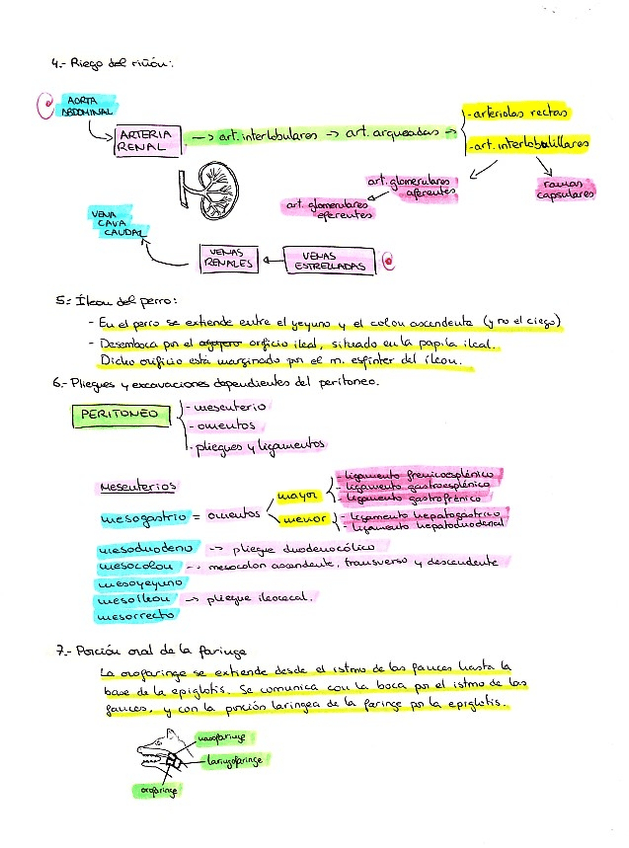 4.- Riego del riñón:
AORTA
ABDOMINAL
ARTERIA
RENAL
→ art. interlobulares → art. arqueadas →
- arteriolas rectas
- art. interlobulillares
art. glomerulares
aferentes
ramas
capsulares
art. glomerulares
eferentes
VENA
CAVA
CAUDAL
VENAS
RENALES
VENAS
ESTRELLADAS
5.- Íleon del perro:
- En el perro se extiende entre el yeyuno y el colon ascendente (y no el ciego)
- Desemboca por el orificio ileal, situado en la papila ileal.
Dicho orificio está marginado por el m. esfínter del íleon.
6.- Pliegues y excavaciones dependientes del peritoneo.
PERITONEO
- mesenterio
- omentos
- pliegues y ligamentos
Mesenterios
mesogastrio = omentos
mayor
- ligamento frenicoesplénico
- ligamento gastroesplénico
- ligamento gastrofrénico
menor
- ligamento hepatogástrico
- ligamento hepatoduodenal
mesoduodeno → pliegue duodenocólico
mesocolon -· mesocolon ascendente, transverso y descendente
mesoyeyuno
mesoíleon → pliegue ileocecal.
mesorrecto
7.- Porción oral de la faringe
La orofaringe se extiende desde el istmo de las fauces hasta la
base de la epiglotis. Se comunica con la boca por el istmo de las
fauces, y con la porción laríngea de la faringe por la epiglotis.
nasofaringe
laringofaringe
orofaringe